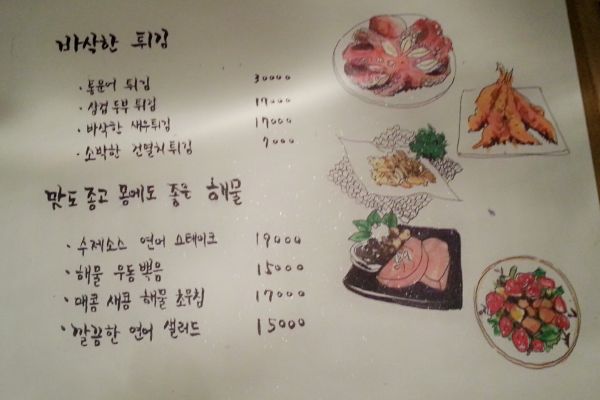 바삭한 튀김
· 통문어 튀김 30000
· 삼겹두부 튀김 17000
· 바삭한 새우튀김 17000
· 소박한 건멸치튀김 7000
맛도 좋고 몸에도 좋은 해물
· 수제소스 연어 스테이크 19000
· 해물 우동볶음 15000
· 매콤 새콤 해물 초무침 17000
· 깔끔한 연어 샐러드 15000